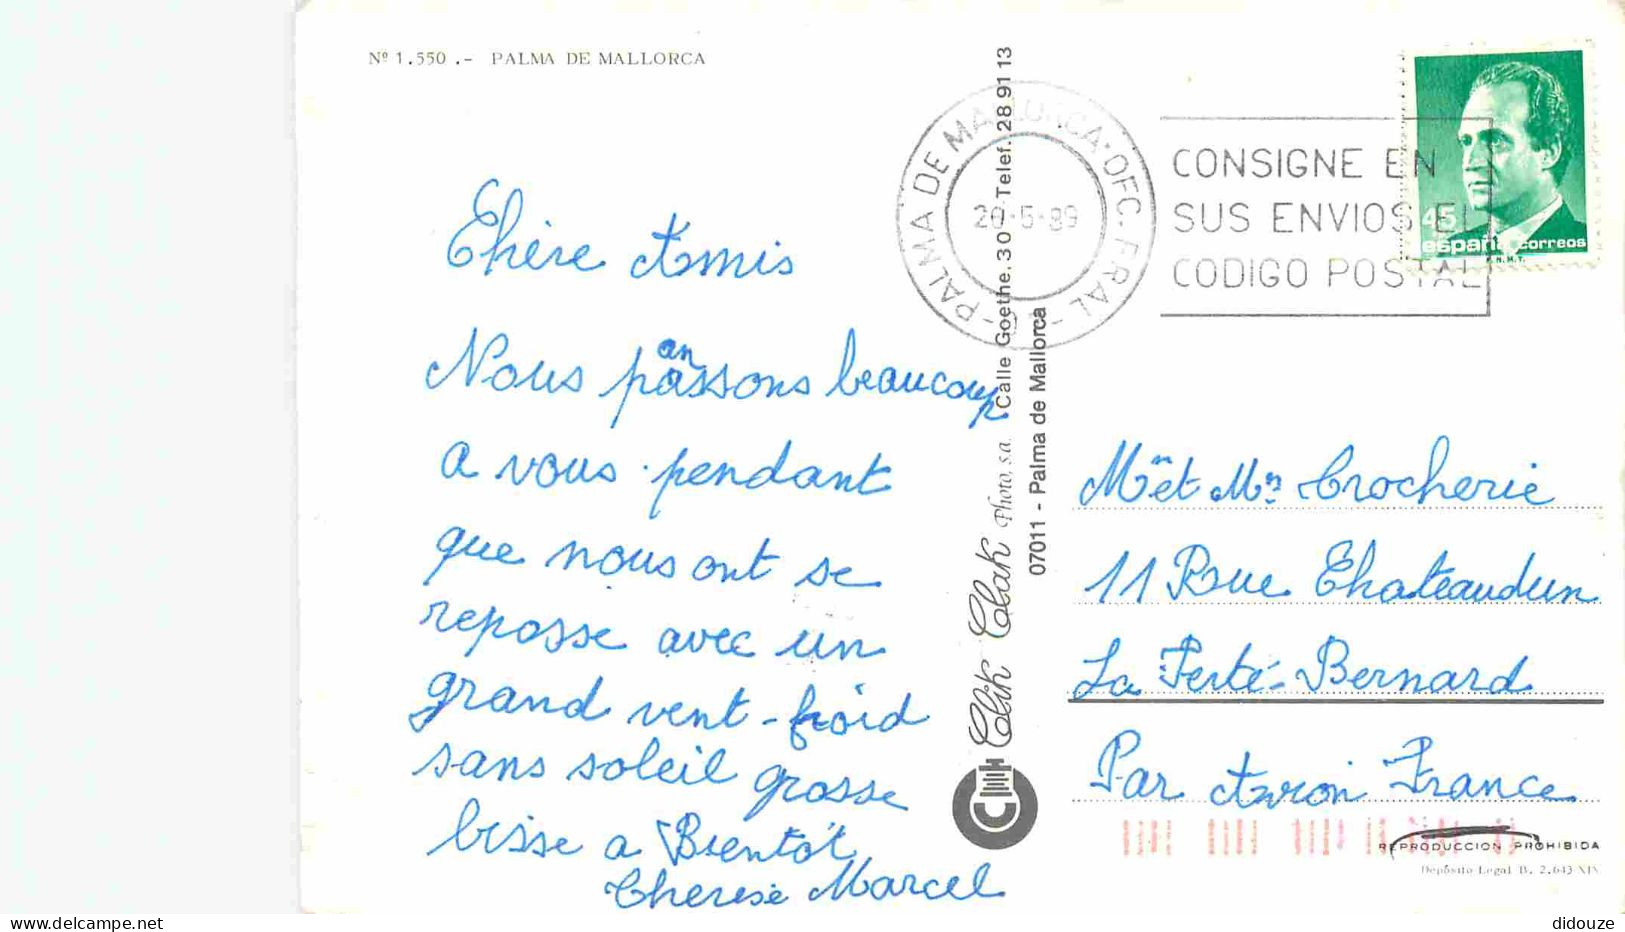 Nº 1.550 .- PALMA DE MALLORCA
Chère Amis
Nous panssons beaucoup
a vous pendant
que nous ont se
reposse avec un
grand vent-froid
sans soleil grosse
bisse a Bientôt
Therese Marcel
Clik Clak Photo, s.a. Calle Goethe, 30 - Telef. 28 91 13
07011 - Palma de Mallorca
PALMA DE MALLORCA·OFC.PRAL-
-5-89
CONSIGNE EN
SUS ENVIOS EL
CODIGO POSTAL
45
españa correos
F.N.M.T.
Mme et Mr Crocherie
11 Rue Chateaudun
La Ferté-Bernard
Par Avion France
REPRODUCCION PROHIBIDA
Depósito Legal B. 2.643-XIX
didouze